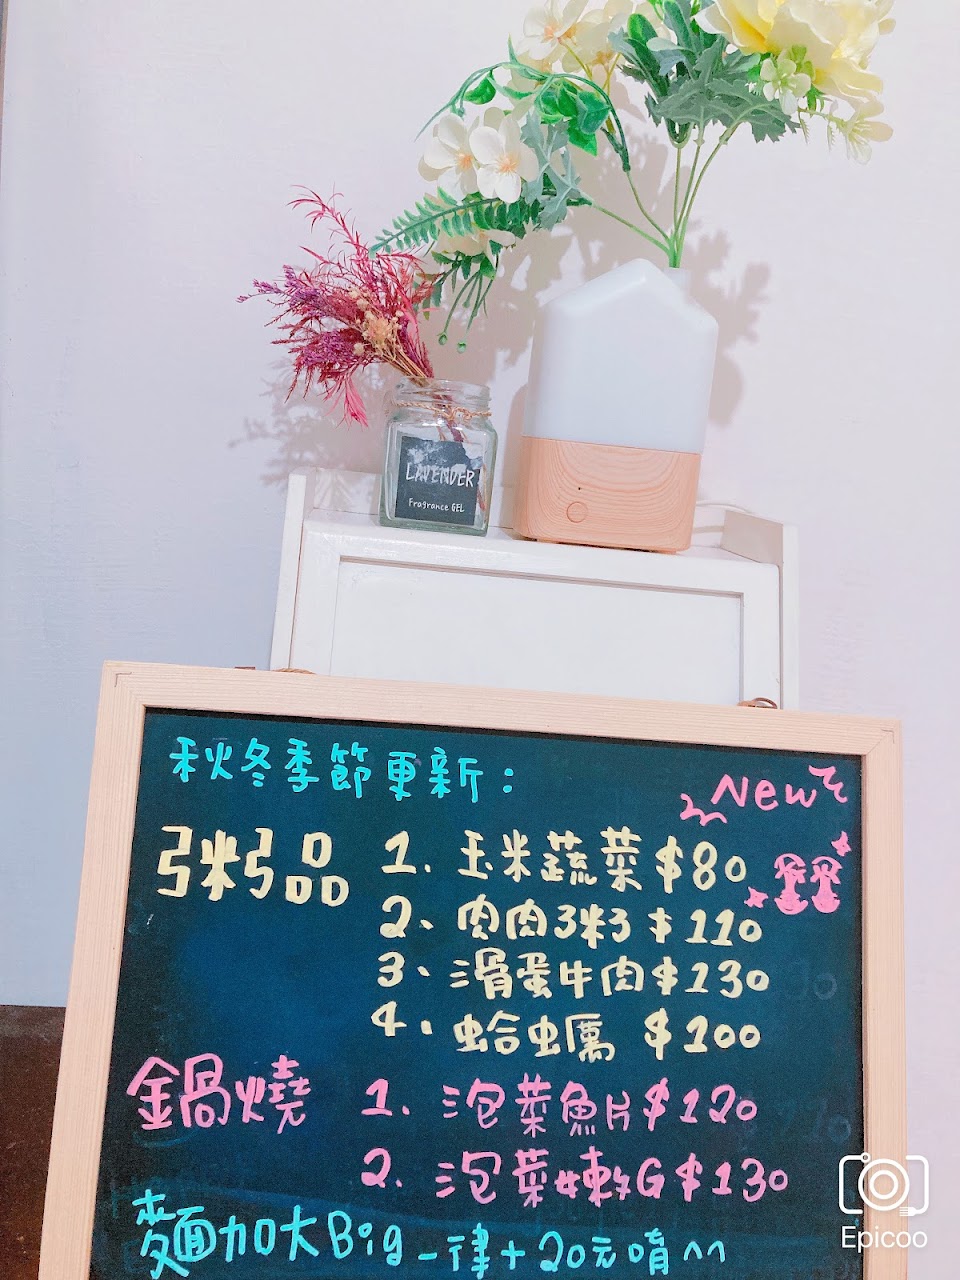 LAVENDER
Fragrance GEL
秋冬季節更新：
New
粥品 1. 玉米蔬菜$80
2、肉肉粥$110
3、滑蛋牛肉$130
4. 蛤蠣$100
鍋燒 1. 泡菜魚片$120
2. 泡菜嫩G$130
麵加大Big_一律+20元唷^^
Epicoo